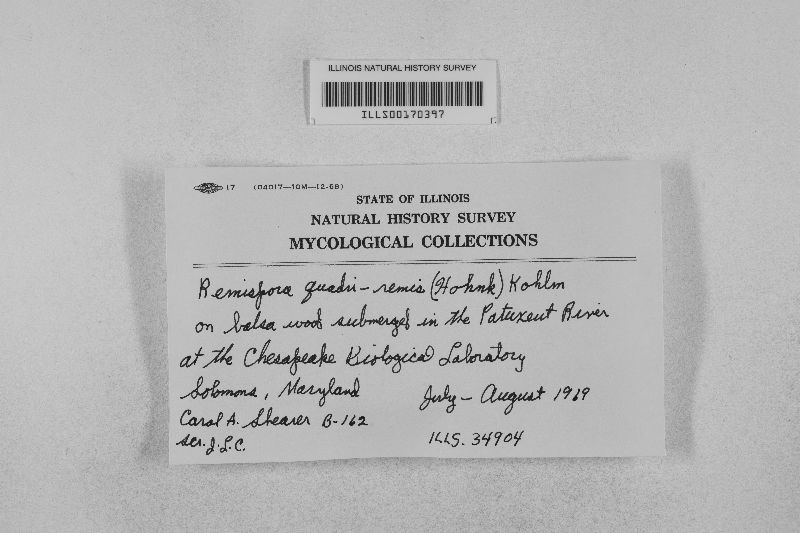 ILLINOIS NATURAL HISTORY SURVEY
ILLS00170397
17 (04017—10M—12-68)
STATE OF ILLINOIS
NATURAL HISTORY SURVEY
MYCOLOGICAL COLLECTIONS
Remispora quadri-remis (Hohnk) Kohlm
on balsa wood submerged in the Patuxent River
at the Chesapeake Biological Laboratory
Solomons, Maryland July - August 1969
Carol A. Shearer B-162
scr. J.L.C. ILLS. 34904